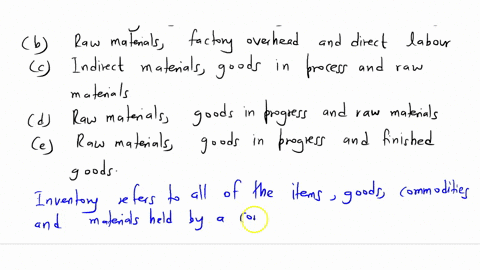 (b) Raw materials, factory overhead and direct labour
(c) Indirect materials, goods in process and raw
materials
(d) Raw materials, goods in progress and raw materials
(e) Raw materials, goods in progress and finished
goods.
Inventory refers to all of the items, goods, commodities
and materials held by a